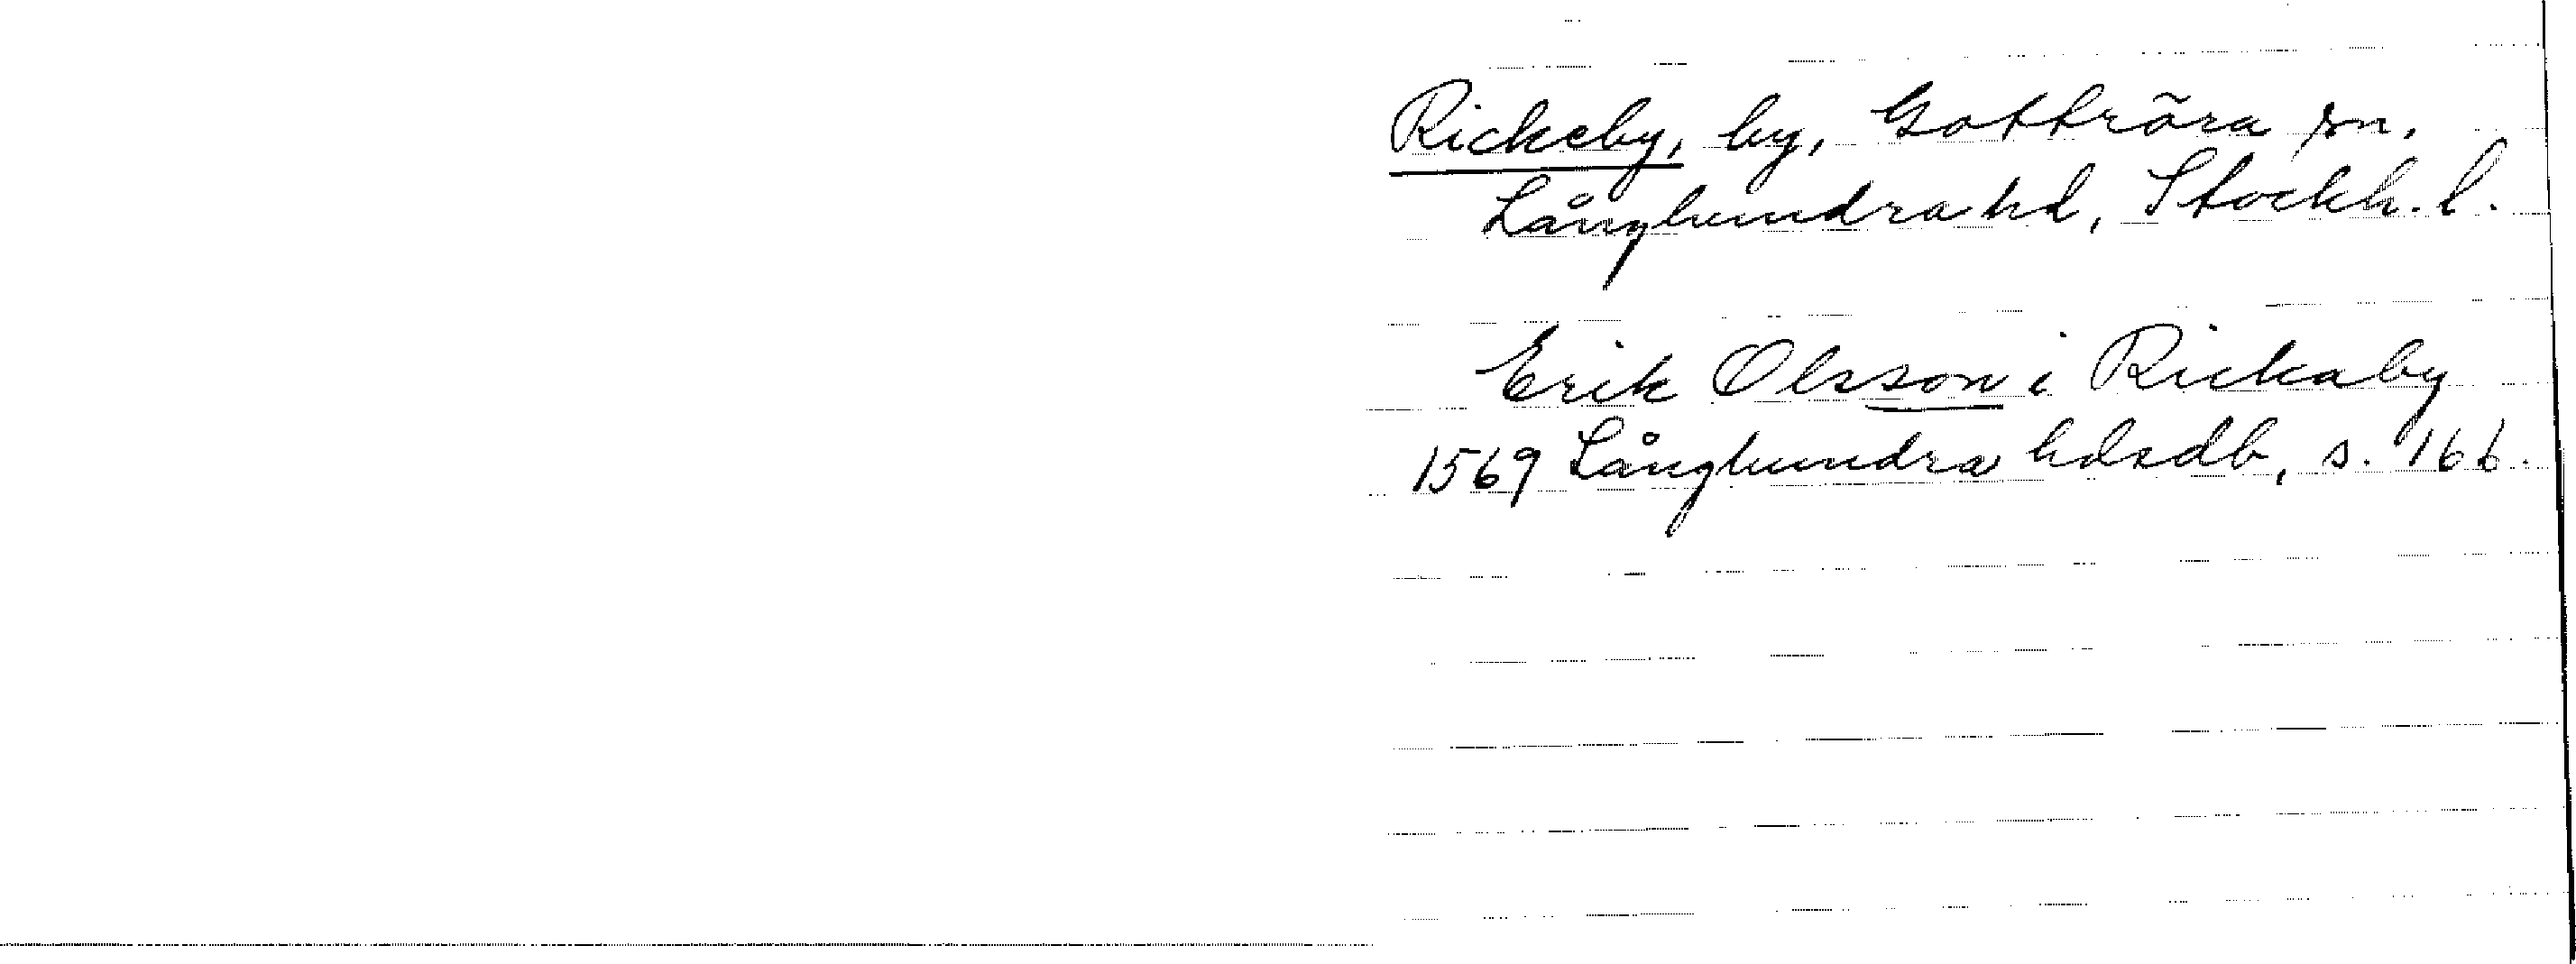 Rickeby, by, Gottröra sn.
Långhundra hd, Stockh. l.
Erik Olsson i Rickaby
1569 Långhundra hdsdb, s. 166.